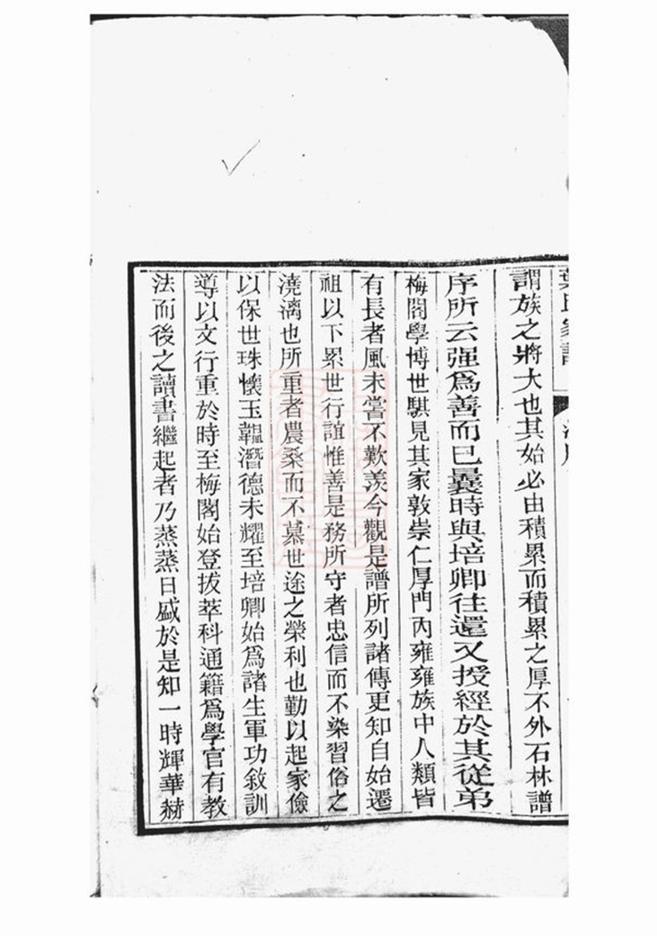 葉氏家譜
謂族之將大也其始必由積累而積累之厚不外石林譜
序所云强爲善而已曩時與培卿往還又授經於其從弟
梅閣學博世騏見其家敦崇仁厚門內雍雍族中人類皆
有長者風未嘗不歎羨今觀是譜所列諸傳更知自始遷
祖以下累世行誼惟善是務所守者忠信而不染習俗之
澆漓也所重者農桑而不慕世途之榮利也勤以起家儉
以保世珠懷玉韞潛德未耀至培卿始爲諸生軍功敘訓
導以文行重於時至梅閣始登拔萃科通籍爲學官有教
法而後之讀書繼起者乃蒸蒸日盛於是知一時輝華赫